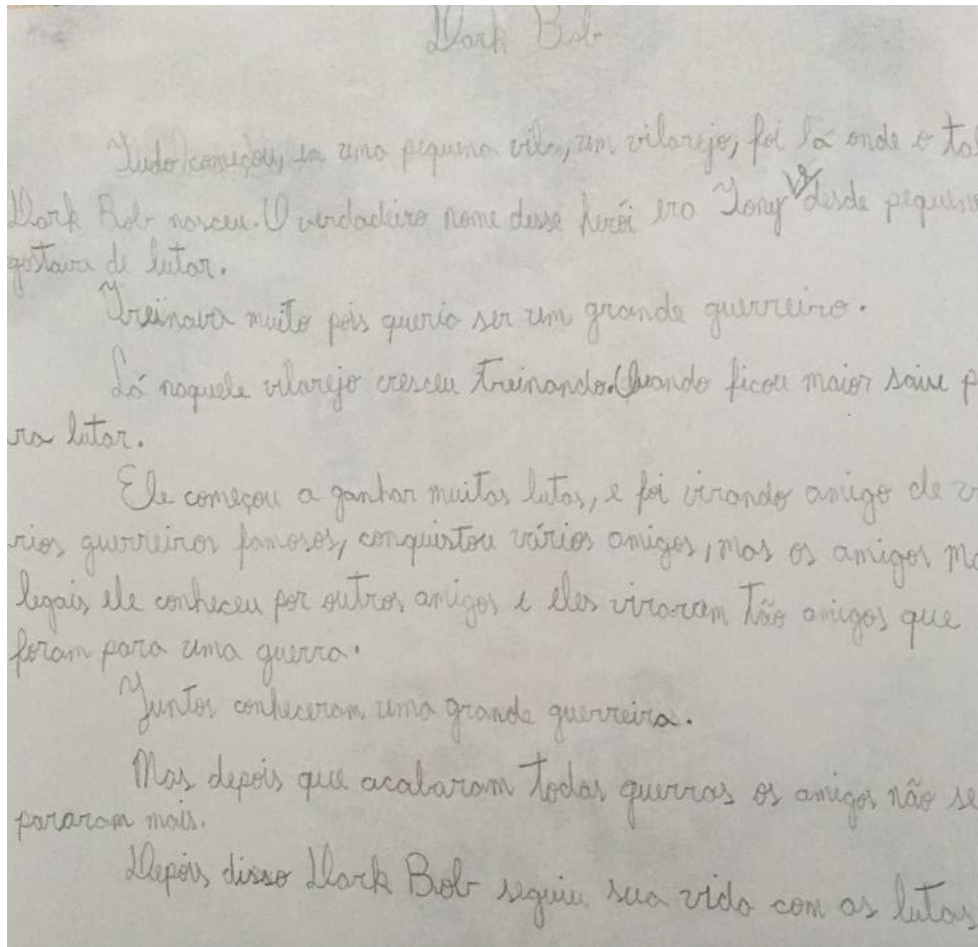 Dark Bob
Tudo começou, em uma pequena vila, um vilarejo, foi lá onde o ta
Dark Bob nasceu. O verdadeiro nome desse herói era Tony desde pequen
gostava de lutar.
Treinava muito pois queria ser um grande guerreiro.
Lá naquele vilarejo cresceu treinando. Quando ficou maior saiu p
ra lutar.
Ele começou a ganhar muitas lutas, e foi virando amigo de v
rios guerreiros famosos, conquistou vários amigos, mas os amigos ma
legais ele conheceu por outros amigos e eles viraram tão amigos que
foram para uma guerra.
Juntos conheceram uma grande guerreira.
Mas depois que acabaram todas guerras os amigos não se
pararam mais.
Depois disso Dark Bob seguiu sua vida com as lutas